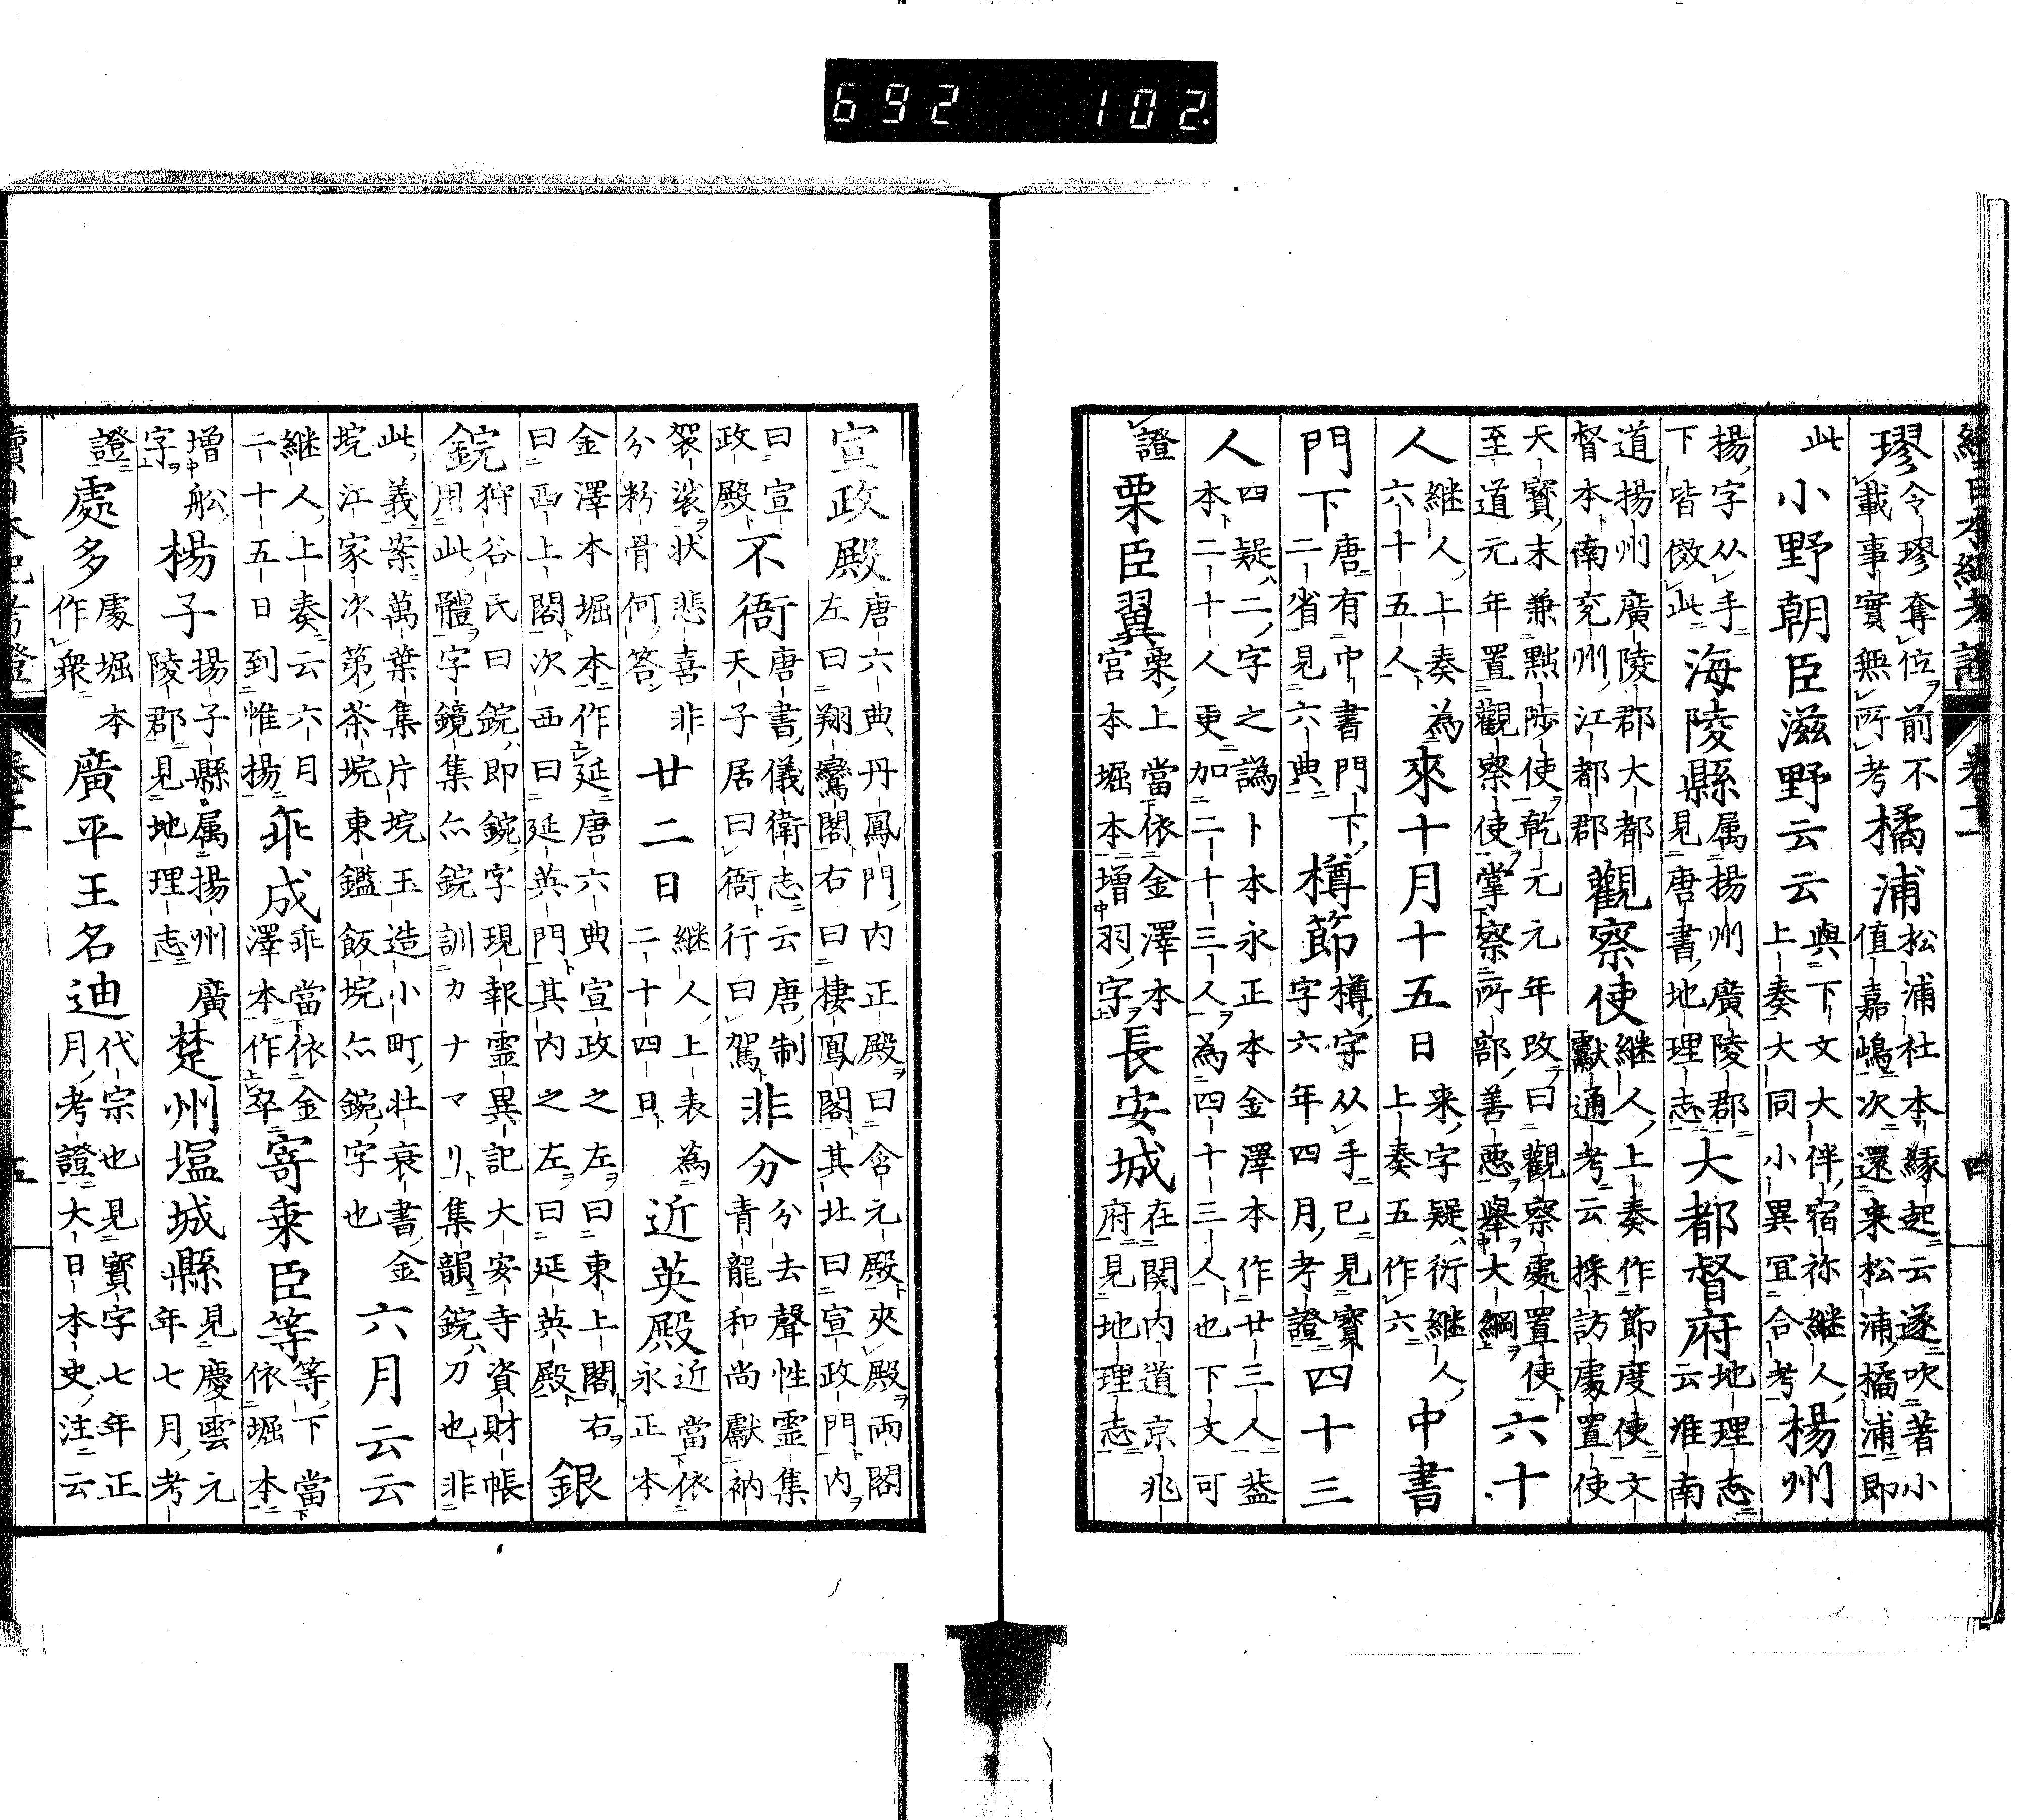 692 102.
續日本紀考證 卷十二 四
璆令璆奪位前不
載事實無所考橘浦松浦社本縁起云遂吹著小
值嘉嶋次還来松浦橘浦即
此小野朝臣滋野云云與下文大伴宿祢継人
上奏大同小異冝合考楊州
揚字从手
下皆倣此海陵縣属揚州廣陵郡
見唐書地理志大都督府地理志
云淮南
道揚州廣陵郡大都
督本南兖州江都郡觀察使継人上奏作節度使文
獻通考云採訪處置使
天寳末兼黜陟使乾元元年改曰觀察處置使
至道元年置觀察使掌察所部善悪舉大綱六十
人継人上奏為
六十五人來十月十五日来字疑衍継人
上奏五作六中書
門下唐有中書門下
二省見六典樽節樽字从手已見寳
字六年四月考證四十三
人四疑二字之譌卜本永正本金澤本作廿三人葢
本二十人更加二十三人為四十三人也下文可
證栗臣翼栗上當依金澤本
宮本堀本増羽字長安城在関内道京兆
府見地理志
宣政殿唐六典丹鳳門内正殿曰含元殿夾殿兩閣
左曰翔鸞閣右曰棲鳳閣其北曰宣政門内
曰宣
政殿不衙唐書儀衛志云唐制
天子居曰衙行曰駕非分分去聲性霊集
青龍和尚獻衲
袈裟状悲喜非
分粉骨何答廿二日継人上表為
二十四日近英殿近當依
永正本
金澤本堀本作延唐六典宣政之左曰東上閣右
曰西上閣次西曰延英門其内之左曰延英殿銀
鋺狩谷氏曰鋺即鋺字現報霊異記大安寺資財帳
用此體字鏡集亦鋺訓カナマリ集韻鋺刀也非
此義案萬葉集片垸玉造小町壮衰書金
垸江家次第茶垸東鑑飯垸亦鋺字也六月云云
継人上奏云六月
二十五日到惟揚乖成乖當依金
澤本作卒寄乗臣等等下當
依堀本
増舩
字楊子揚子縣属揚州廣
陵郡見地理志楚州塩城縣見慶雲元
年七月考
證處多處堀本
作衆廣平王名迪代宗也見寳字七年正
月考證大日本史注云
續日本紀考證 卷十二 五